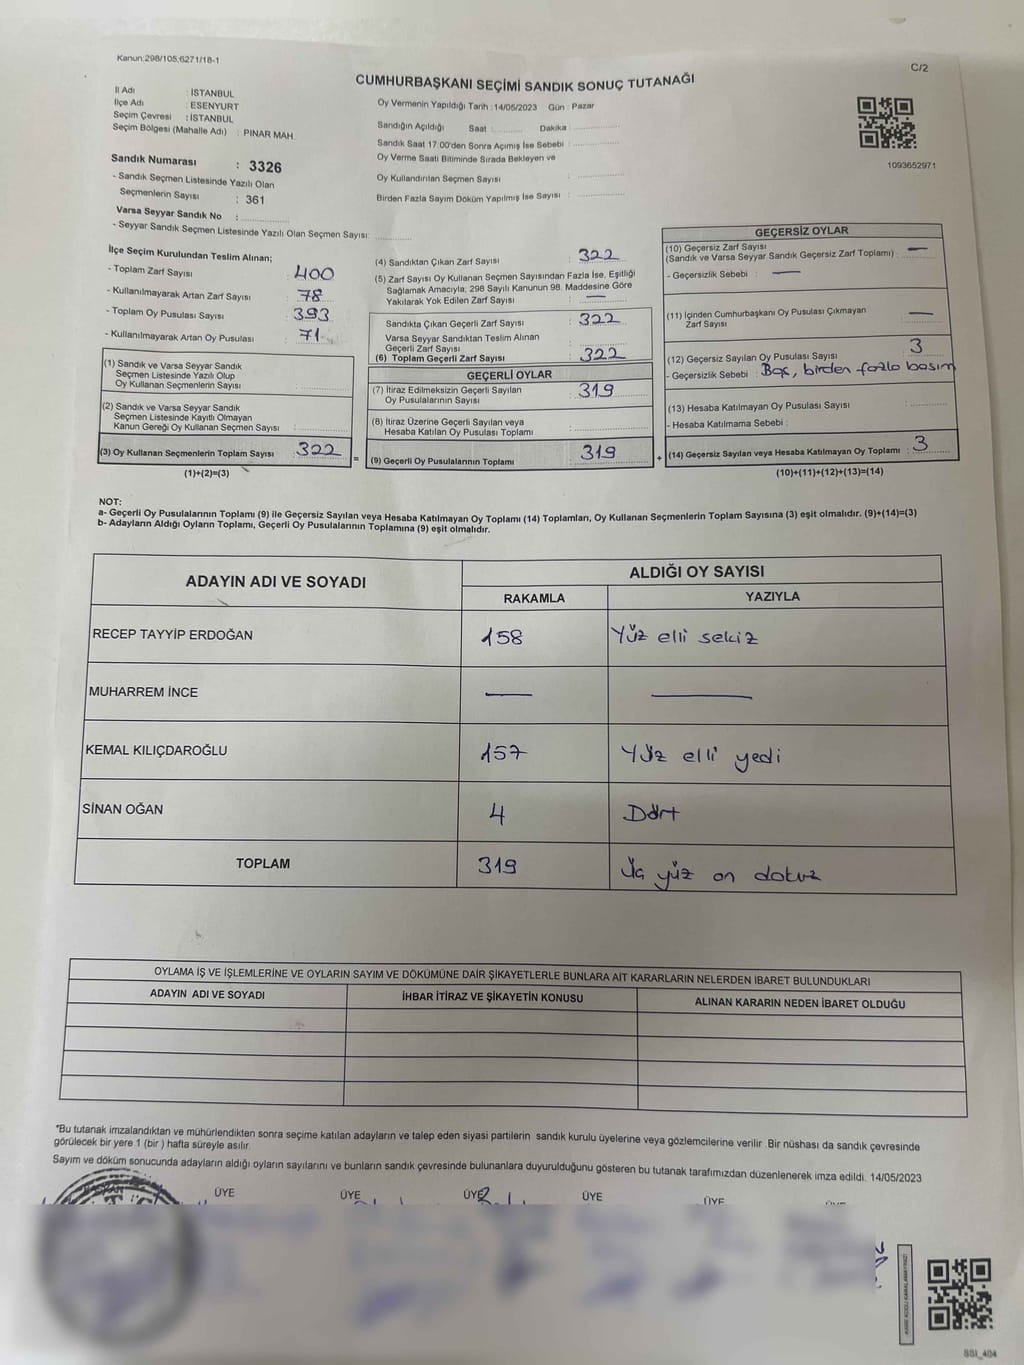 Kanun:298/105;6271/18-1
C/2
CUMHURBAŞKANI SEÇİMİ SANDIK SONUÇ TUTANAĞI
İl Adı : İSTANBUL
İlçe Adı : ESENYURT
Seçim Çevresi : İSTANBUL
Seçim Bölgesi (Mahalle Adı) : PINAR MAH.
Sandık Numarası : 3326
- Sandık Seçmen Listesinde Yazılı Olan
Seçmenlerin Sayısı : 361
Varsa Seyyar Sandık No :
- Seyyar Sandık Seçmen Listesinde Yazılı Olan Seçmen Sayısı:
Oy Vermenin Yapıldığı Tarih : 14/05/2023 Gün : Pazar
Sandığın Açıldığı Saat : Dakika :
Sandık Saat 17:00'den Sonra Açımış İse Sebebi :
Oy Verme Saati Bitiminde Sırada Bekleyen ve
Oy Kullandırılan Seçmen Sayısı :
Birden Fazla Sayım Döküm Yapılmış İse Sayısı :
1093652971
İlçe Seçim Kurulundan Teslim Alınan;
- Toplam Zarf Sayısı : 400
- Kullanılmayarak Artan Zarf Sayısı : 78
- Toplam Oy Pusulası Sayısı : 393
- Kullanılmayarak Artan Oy Pusulası : 71
(1) Sandık ve Varsa Seyyar Sandık
Seçmen Listesinde Yazılı Olup
Oy Kullanan Seçmenlerin Sayısı :
(2) Sandık ve Varsa Seyyar Sandık
Seçmen Listesinde Kayıtlı Olmayan
Kanun Gereği Oy Kullanan Seçmen Sayısı :
(3) Oy Kullanan Seçmenlerin Toplam Sayısı : 322
(1)+(2)=(3)
(4) Sandıktan Çıkan Zarf Sayısı : 322
(5) Zarf Sayısı Oy Kullanan Seçmen Sayısından Fazla İse, Eşitliği
Sağlamak Amacıyla; 298 Sayılı Kanunun 98. Maddesine Göre
Yakılarak Yok Edilen Zarf Sayısı : —
Sandıkta Çıkan Geçerli Zarf Sayısı : 322
Varsa Seyyar Sandıktan Teslim Alınan
Geçerli Zarf Sayısı :
(6) Toplam Geçerli Zarf Sayısı : 322
GEÇERLİ OYLAR
(7) İtiraz Edilmeksizin Geçerli Sayılan
Oy Pusulalarının Sayısı : 319
(8) İtiraz Üzerine Geçerli Sayılan veya
Hesaba Katılan Oy Pusulası Toplamı :
= (9) Geçerli Oy Pusulalarının Toplamı : 319
GEÇERSİZ OYLAR
(10) Geçersiz Zarf Sayısı
(Sandık ve Varsa Seyyar Sandık Geçersiz Zarf Toplamı) : —
- Geçersizlik Sebebi : —
(11) İçinden Cumhurbaşkanı Oy Pusulası Çıkmayan
Zarf Sayısı : —
(12) Geçersiz Sayılan Oy Pusulası Sayısı : 3
- Geçersizlik Sebebi : Boş, birden fazla basım
(13) Hesaba Katılmayan Oy Pusulası Sayısı :
- Hesaba Katılmama Sebebi :
+ (14) Geçersiz Sayılan veya Hesaba Katılmayan Oy Toplamı : 3
(10)+(11)+(12)+(13)=(14)
NOT:
a- Geçerli Oy Pusulalarının Toplamı (9) ile Geçersiz Sayılan veya Hesaba Katılmayan Oy Toplamı (14) Toplamları, Oy Kullanan Seçmenlerin Toplam Sayısına (3) eşit olmalıdır. (9)+(14)=(3)
b- Adayların Aldığı Oyların Toplamı, Geçerli Oy Pusulalarının Toplamına (9) eşit olmalıdır.
ADAYIN ADI VE SOYADI ALDIĞI OY SAYISI
RAKAMLA YAZIYLA
RECEP TAYYİP ERDOĞAN 158 Yüz elli sekiz
MUHARREM İNCE — —
KEMAL KILIÇDAROĞLU 157 Yüz elli yedi
SİNAN OĞAN 4 Dört
TOPLAM 319 Üç yüz on dokuz
OYLAMA İŞ VE İŞLEMLERİNE VE OYLARIN SAYIM VE DÖKÜMÜNE DAİR ŞİKAYETLERLE BUNLARA AİT KARARLARIN NELERDEN İBARET BULUNDUKLARI
ADAYIN ADI VE SOYADI İHBAR İTİRAZ VE ŞİKAYETİN KONUSU ALINAN KARARIN NEDEN İBARET OLDUĞU
*Bu tutanak imzalandıktan ve mühürlendikten sonra seçime katılan adayların ve talep eden siyasi partilerin sandık kurulu üyelerine veya gözlemcilerine verilir .Bir nüshası da sandık çevresinde
görülecek bir yere 1 (bir ) hafta süreyle asılır.
Sayım ve döküm sonucunda adayların aldığı oyların sayılarını ve bunların sandık çevresinde bulunanlara duyurulduğunu gösteren bu tutanak tarafımızdan düzenlenerek imza edildi. 14/05/2023
ÜYE ÜYE ÜYE ÜYE ÜYE
SSI_404